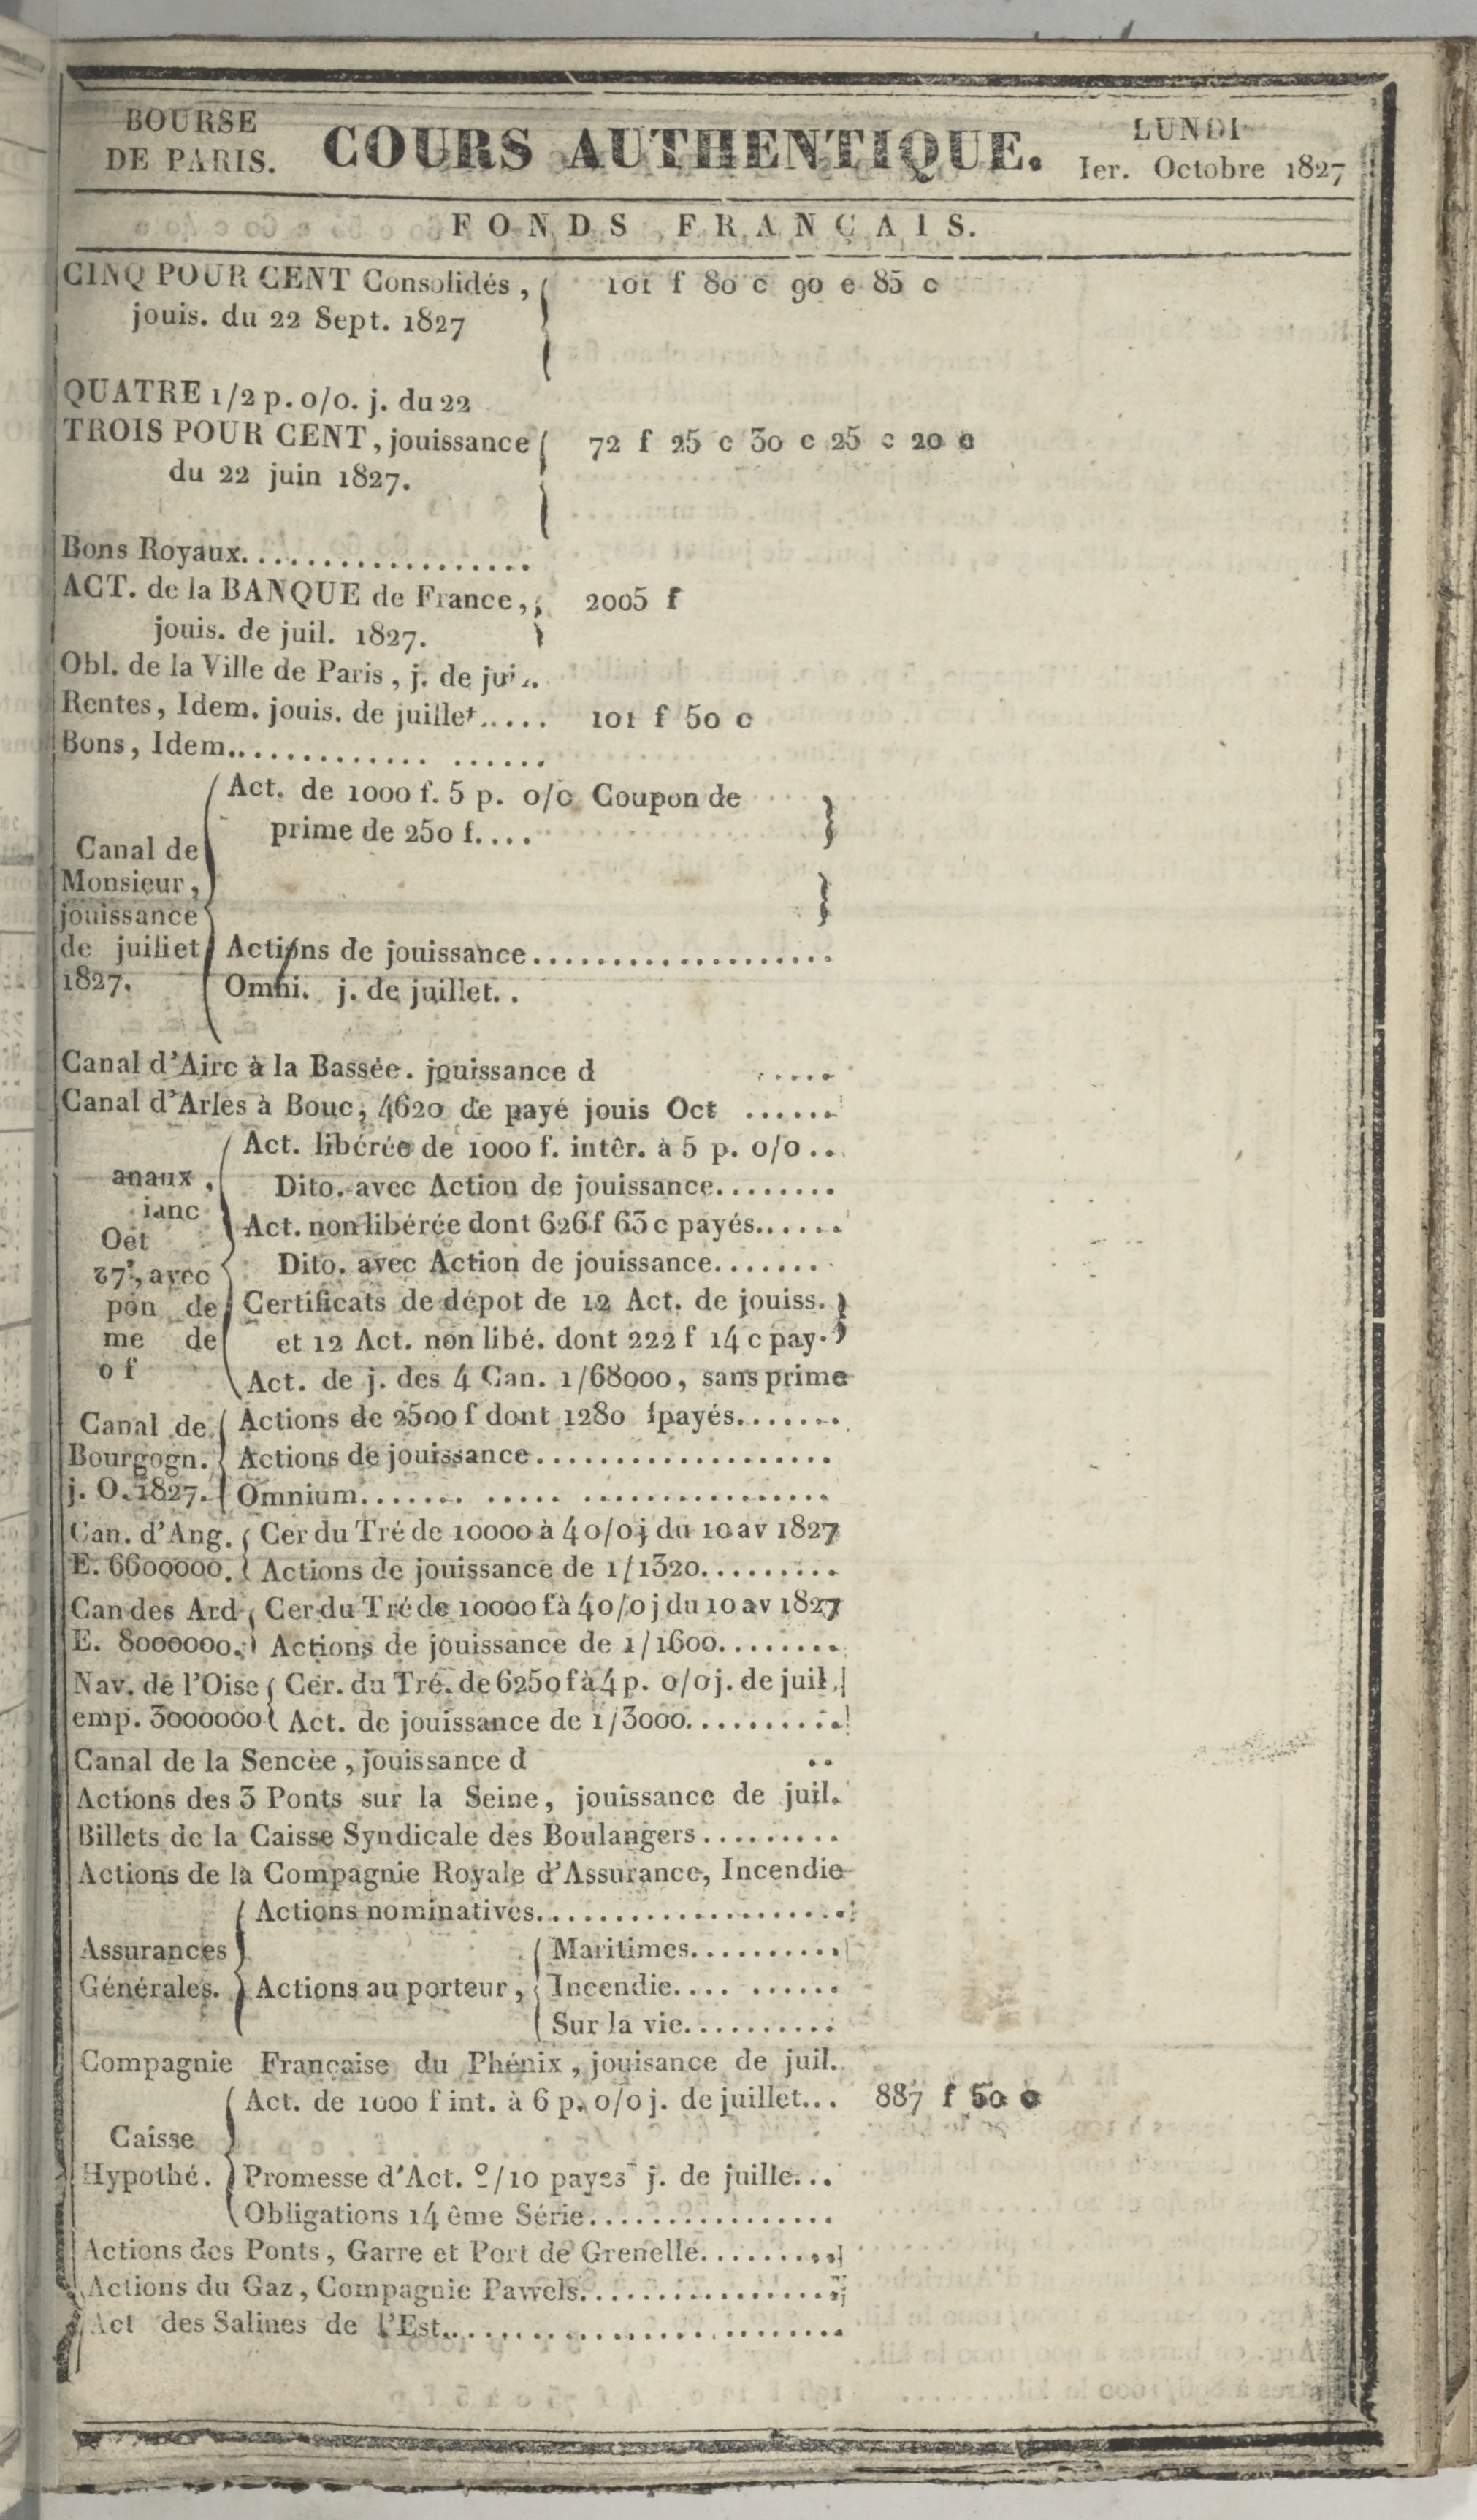 BOURSE
DE PARIS.
COURS AUTHENTIQUE.
LUNDI
Ier. Octobre 1827
FONDS FRANÇAIS.
CINQ POUR CENT Consolidés, 101 f 80 c 90 e 85 c
jouis. du 22 Sept. 1827
QUATRE 1/2 p. o/o. j. du 22
TROIS POUR CENT, jouissance 72 f 25 c 30 c 25 c 20 c
du 22 juin 1827.
Bons Royaux..................
ACT. de la BANQUE de France, 2005 f
jouis. de juil. 1827.
Obl. de la Ville de Paris, j. de
Rentes, Idem. jouis. de juillet..... 101 f 50 c
Bons, Idem.............. ......
Canal de
Monsieur,
jouissance
de juillet
1827.
Act. de 1000 f. 5 p. o/o Coupon de
prime de 250 f....
Actions de jouissance...................
Omni. j. de juillet..
Canal d'Aire à la Bassée. jouissance d .....
Canal d'Arles à Bouc, 4620 de payé jouis Oct ......
anaux,
Oct
27, avec
pon de
me de
o f
Act. libérée de 1000 f. intêr. à 5 p. o/o...
Dito. avec Action de jouissance........
Act. non libérée dont 626 f 63 c payés......
Dito. avec Action de jouissance........
Certificats de dépot de 12 Act. de jouiss.
et 12 Act. non libé. dont 222 f 14 c pay.
Act. de j. des 4 Can. 1/68000, sans prime
Canal de
Bourgogn.
j. O. 1827.
Actions de 2500 f dont 1280 fpayés.......
Actions de jouissance...................
Omnium....... ..... ................
Can. d'Ang. Cer du Tré de 10000 à 4 o/o j du 10 av 1827
E. 6600000. Actions de jouissance de 1/1320.........
Can des Ard Cer du Tré de 10000 f à 4 o/o j du 10 av 1827
E. 8000000. Actions de jouissance de 1/1600........
Nav. de l'Oise Cer. du Tré. de 6250 f à 4 p. o/o j. de juil.
emp. 3000000 Act. de jouissance de 1/3000..........
Canal de la Sencèe, jouissance d ..
Actions des 3 Ponts sur la Seine, jouissance de juil.
Billets de la Caisse Syndicale des Boulangers.........
Actions de la Compagnie Royale d'Assurance, Incendie
Assurances
Générales.
Actions nominatives....................
Actions au porteur,
Maritimes..........
Incendie.... ......
Sur la vie..........
Compagnie Française du Phénix, jouisance de juil.
Caisse
Hypothé.
Act. de 1000 f int. à 6 p. o/o j. de juillet... 887 f 50 c
Promesse d'Act. 2/10 payes j. de juille...
Obligations 14 ême Série................
Actions des Ponts, Garre et Port de Grenelle.........
Actions du Gaz, Compagnie Pawels................
Act des Salines de l'Est..........................